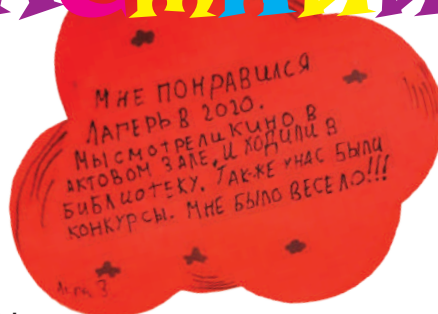 МНЕ ПОНРАВИЛСЯ
ЛАГЕРЬ В 2020.
МЫ СМОТРЕЛИ КИНО В
АКТОВОМ ЗАЛЕ, И ХОДИЛИ В
БИБЛИОТЕКУ. ТАКЖЕ У НАС БЫЛИ
КОНКУРСЫ. МНЕ БЫЛО ВЕСЕЛО!!!